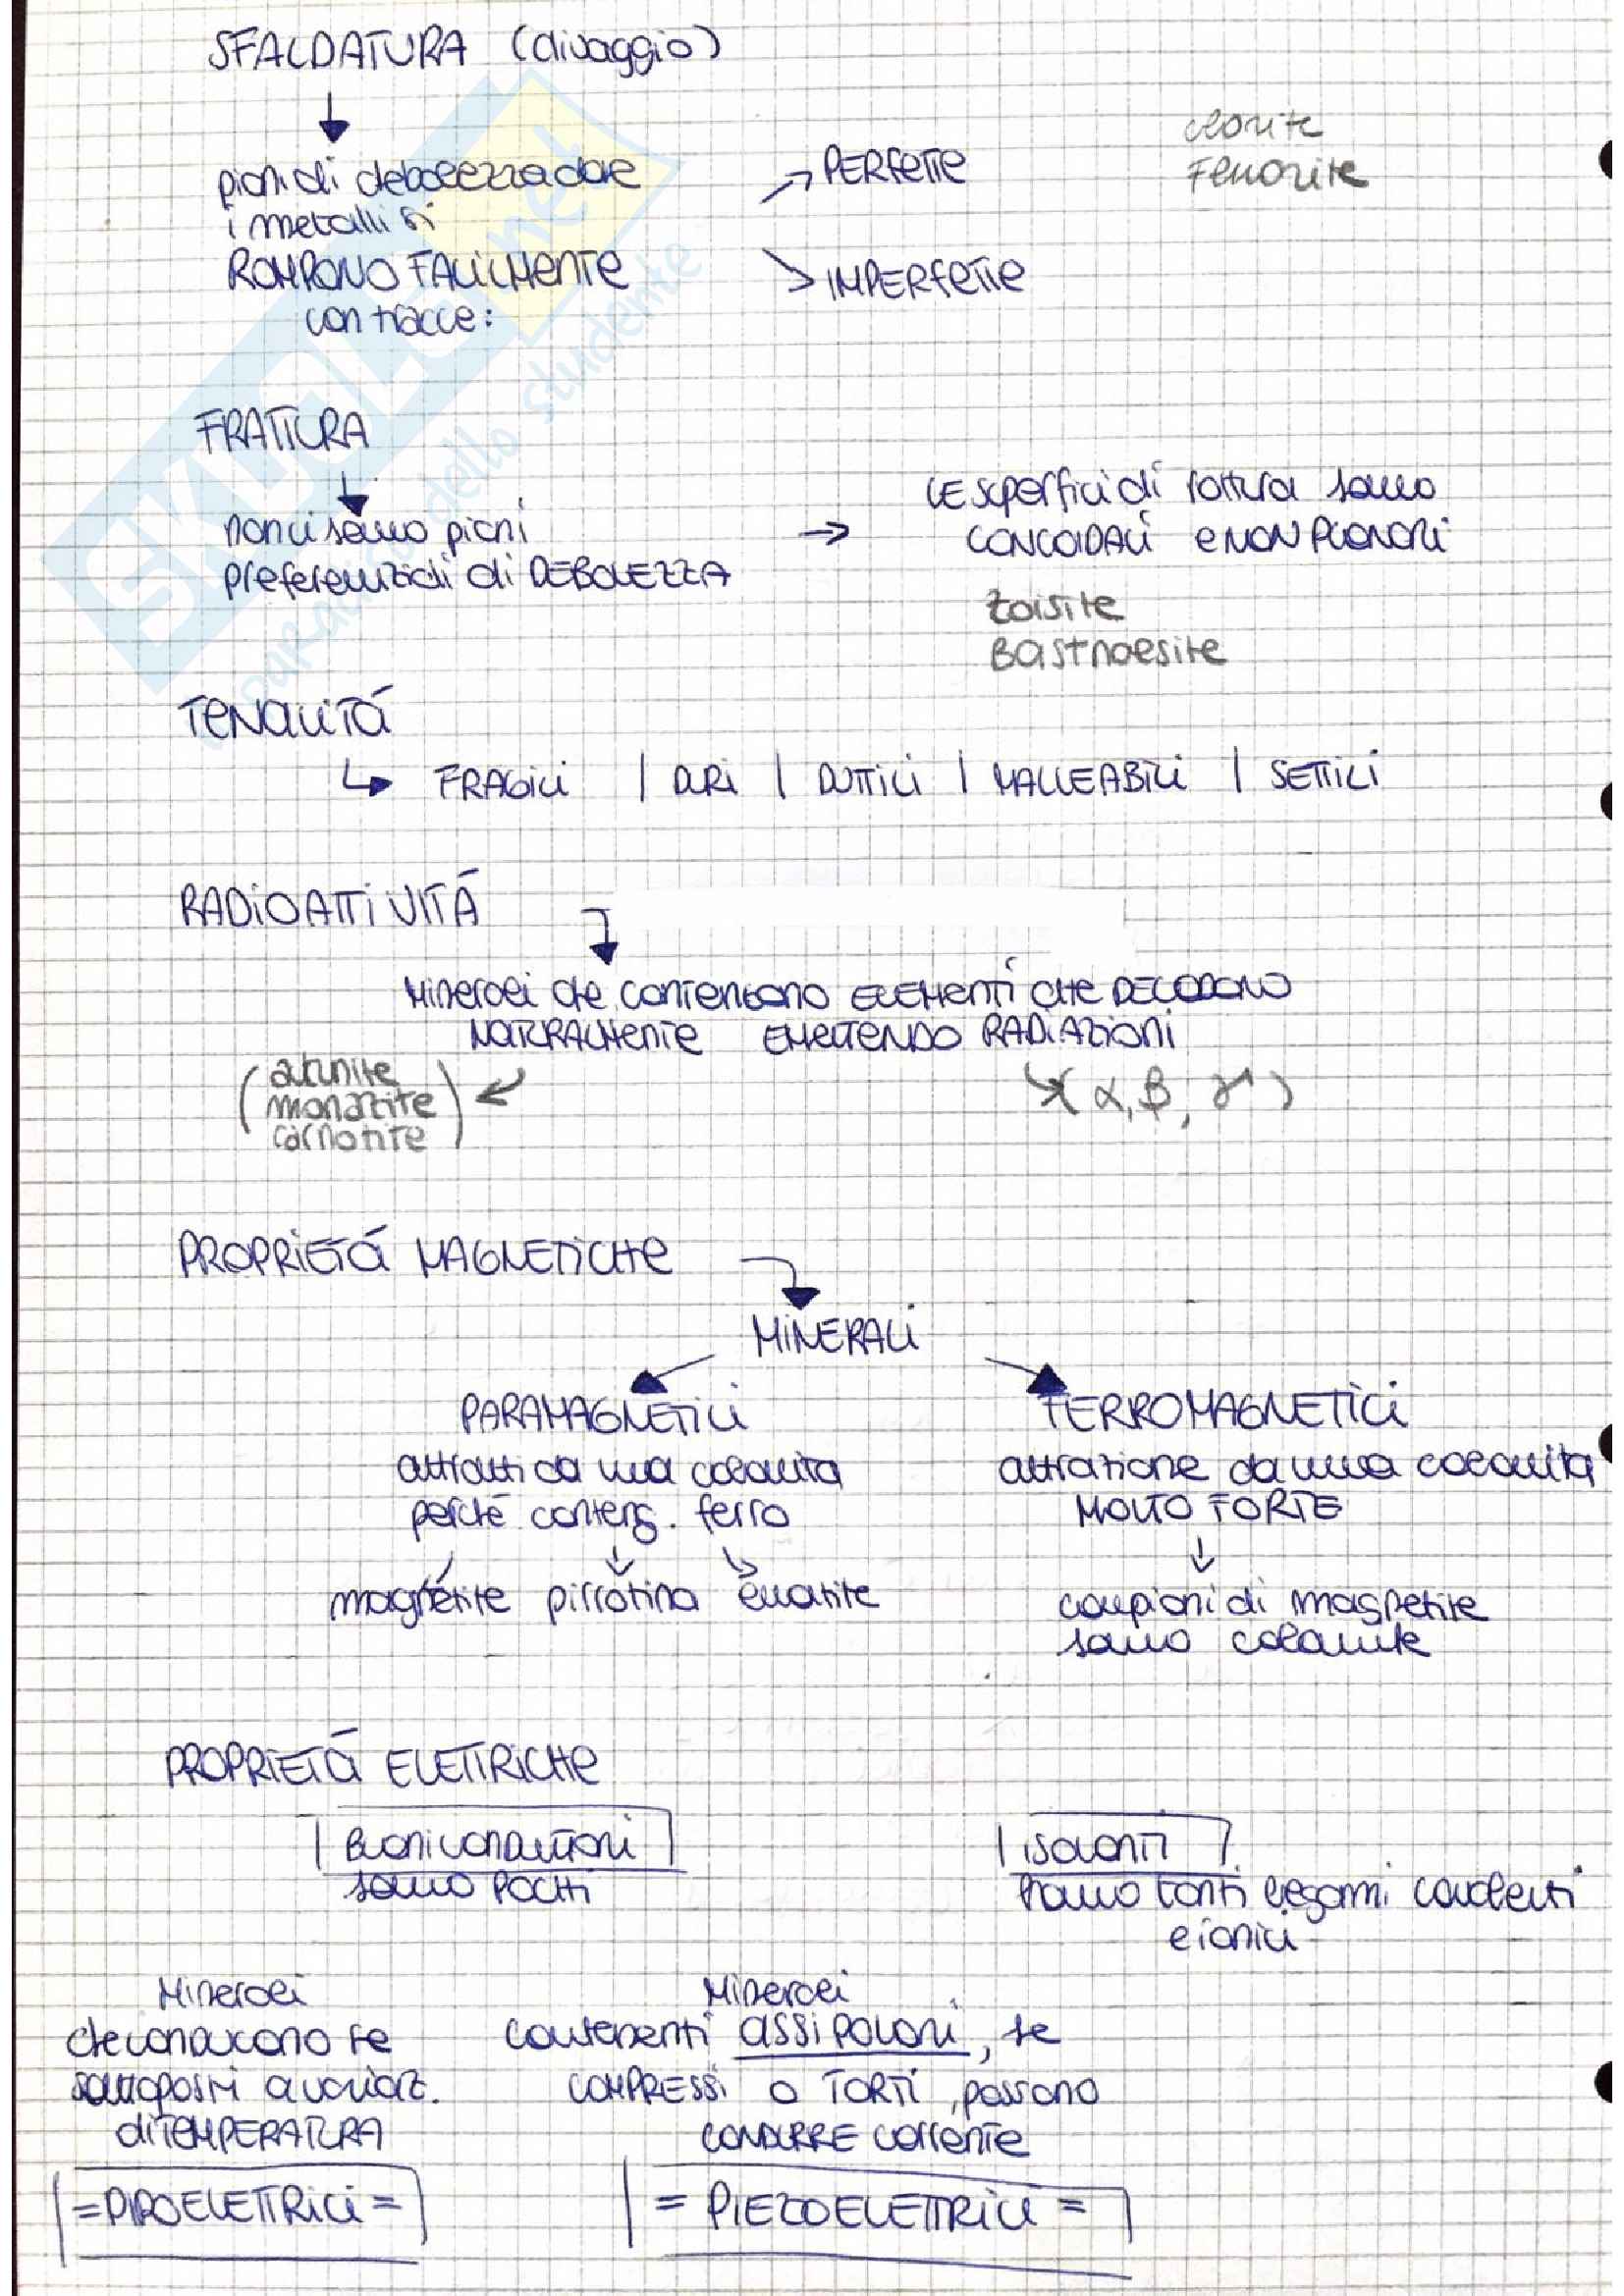 SFALDATURA (clivaggio)
piani di debolezza dove
i metalli si
ROMPONO FACILMENTE
con tracce:
PERFETTE
IMPERFETTE
clorite
FRATTURA
non ci sono piani
preferenziali di DEBOLEZZA
LE superfici di rottura sono
CONCOIDALI e NON PLANARI
zoisite
Bastnaesite
TENACITÁ
FRAGILI | DURI | DUTTILI | MALLEABILI | SETTILI
RADIOATTIVITÁ
Minerali che contengono ELEMENTI CHE DECADONO
NATURALMENTE EMETTENDO RADIAZIONI
(autunite
monazite
carnotite)
(α, β, γ)
PROPRIETÁ MAGNETICHE
MINERALI
PARAMAGNETICI
attratti da una calamita
perché conteng. ferro
magnetite pirrotina ematite
FERROMAGNETICI
attrazione da una calamita
MOLTO FORTE
campioni di magnetite
sono calamite
PROPRIETÁ ELETTRICHE
Buoni conduttori
sono POCHI
ISOLANTI
hanno tanti legami covalenti
e ionici
Minerali
che conducono se
sottoposti a variaz.
di TEMPERATURA
= PIROELETTRICI =
Minerali
contenenti assi polari, se
COMPRESSI o TORTI, possono
CONDURRE corrente
= PIEZOELETTRICI =
SKUOLA.net
il paradiso dello studente